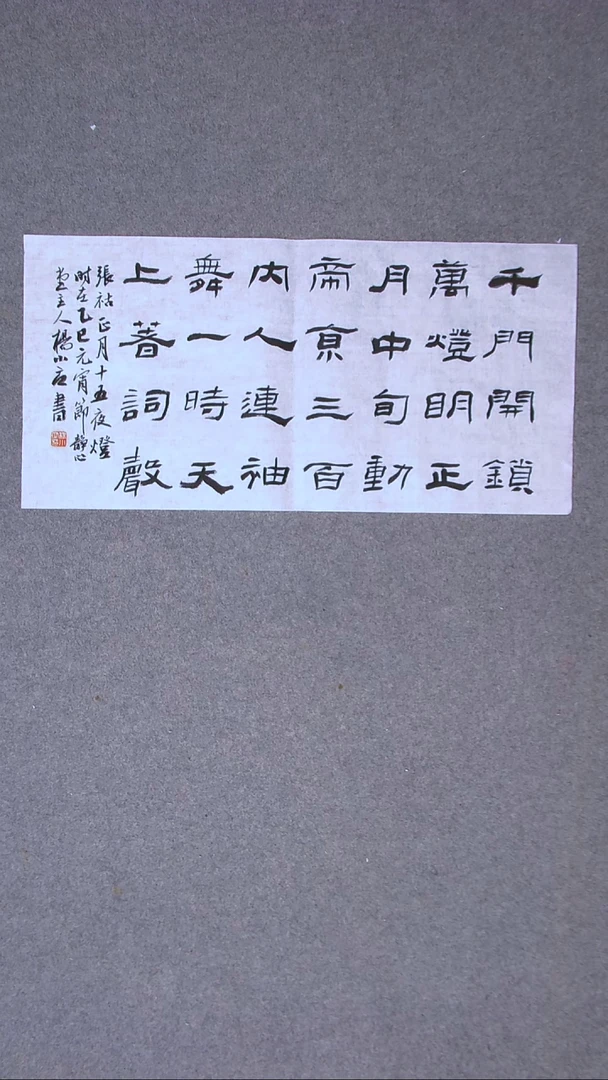 千門開鎖
萬燈明正
月中旬動
帝京三百
內人連袖
舞一時天
上著詞聲
張祜正月十五夜燈
時在乙巳元宵節靜心
堂主人楊小 書